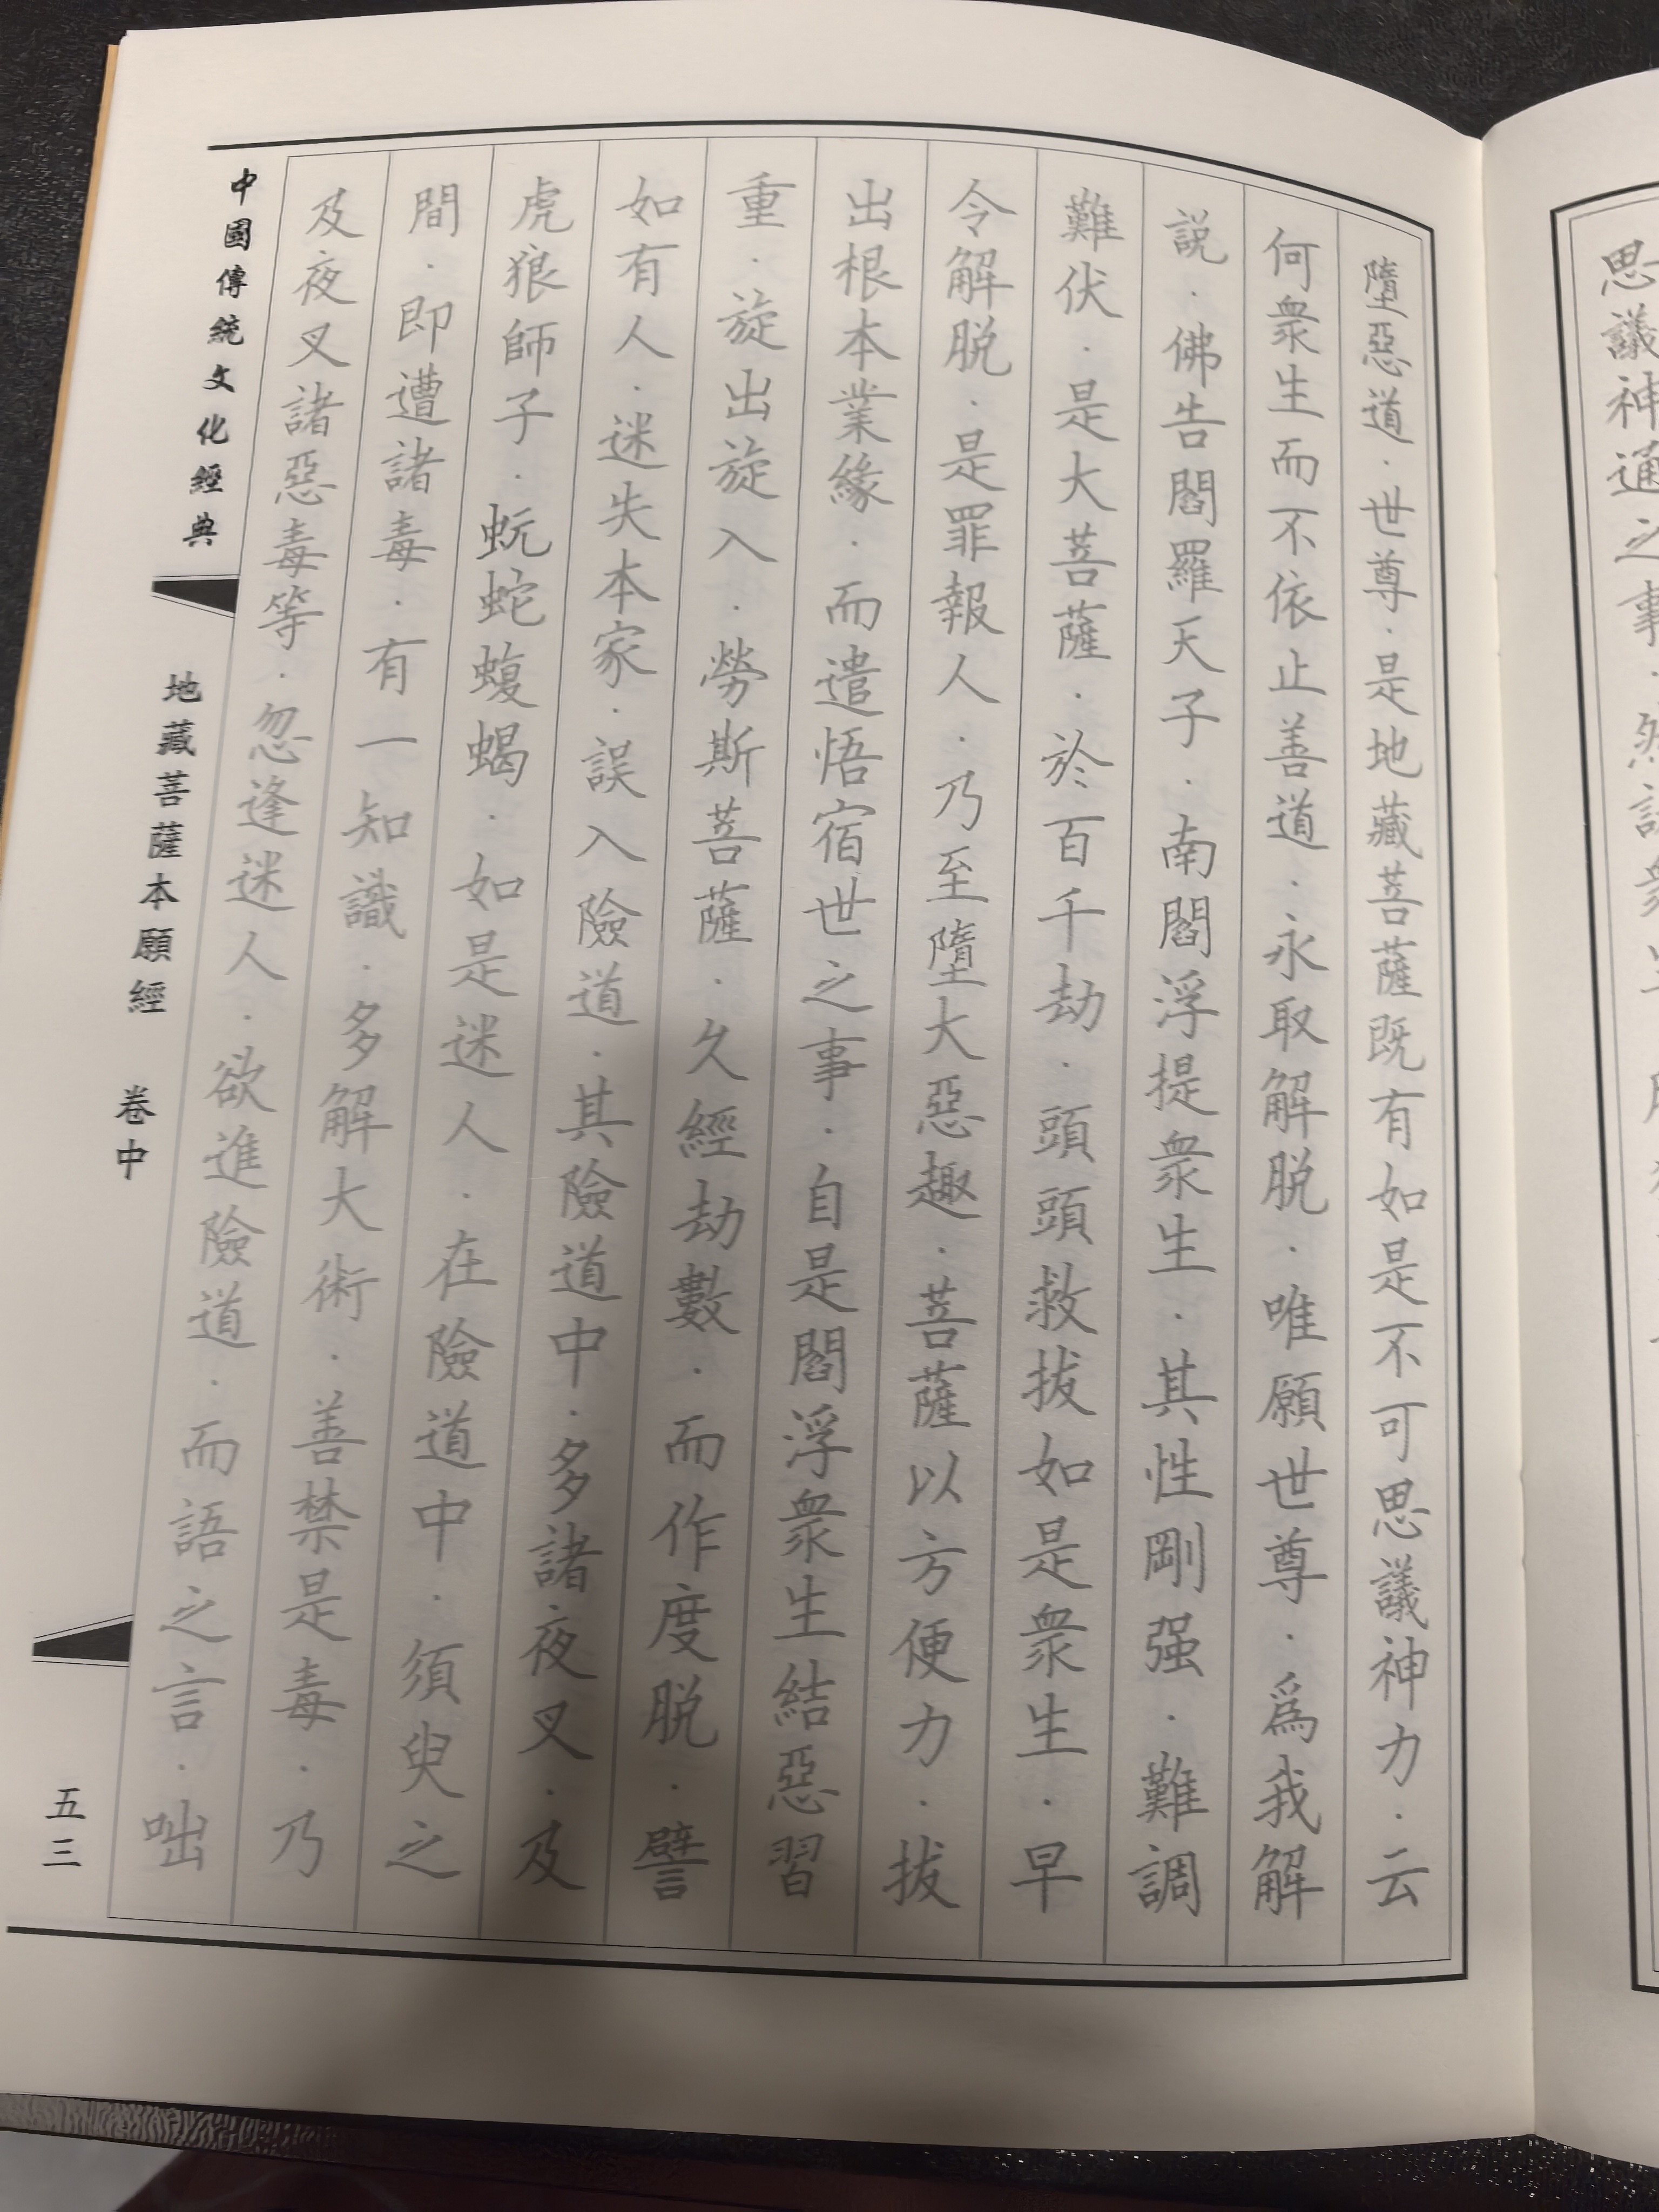 墮惡道．世尊．是地藏菩薩既有如是不可思議神力．云
何衆生而不依止善道．永取解脱．唯願世尊．爲我解
説．佛告閻羅天子．南閻浮提衆生．其性剛强．難調
難伏．是大菩薩．於百千劫．頭頭救拔如是衆生．早
令解脱．是罪報人．乃至墮大惡趣．菩薩以方便力．拔
出根本業緣．而遣悟宿世之事．自是閻浮衆生結惡習
重．旋出旋入．勞斯菩薩．久經劫數．而作度脱．譬
如有人．迷失本家．誤入險道．其險道中．多諸夜叉．及
虎狼師子．蚖蛇蝮蝎．如是迷人．在險道中．須臾之
間．即遭諸毒．有一知識．多解大術．善禁是毒．乃
及夜叉諸惡毒等．忽逢迷人．欲進險道．而語之言．咄
中國傳統文化經典
地藏菩薩本願經 卷中
五三
思議神通之事